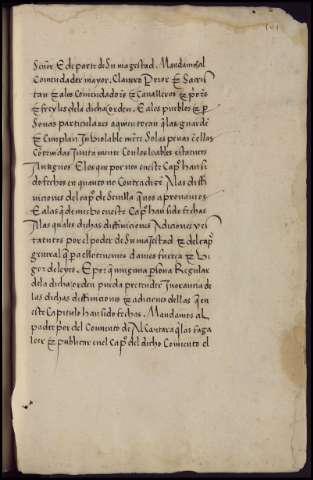 Señor E de parte de Su magestad. Mandamos al
Comendador mayor, Clauero Prior E Sacris
tan E a los Comendadores E Caualleros E priores
E freyles de la dicha orden. E a les pueblos E per
sonas particulares a quien tocan que las guardē
E Cumplan Inviolable mēte So las penas ē ellas
Cōtenidas Juntamente Con los loables estatutos
Antiguos E los que por nos en este Capº han si
do fechos en quanto no Contradigē A las diffi
niciones del capº de Seuilla que nos aprouamos
E a las que de nuevo en este Capº han sido fechas
A las quales dichas diffiniciones Adiciones y es
tatutos por el poder de Su majestad E del capº
general que pa ello tenemos damos fuerça E Vi
gor de leyes. E por que ninguna persona Regular
de la dicha orden pueda pretender Ynorancia de
las dichas diffiniciones E adiciones de llas que en
este Capitulo han sido fechas. Mandamos al
padre prior del Convento de Alcantara que las haga
leer E publicar en el Capº del dicho Convento el